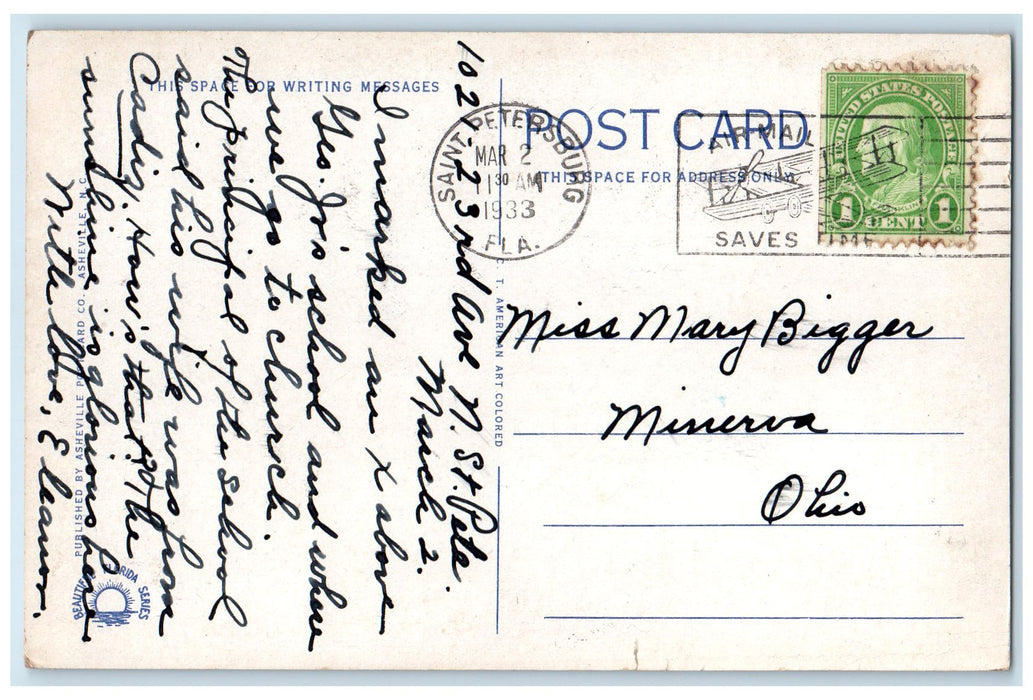 THIS SPACE FOR WRITING MESSAGES
POST CARD
THIS SPACE FOR ADDRESS ONLY
SAINT PETERSBURG
MAR 2
1 30 AM
1933
FLA.
AIR MAIL
SAVES
UNITED STATES POSTAGE
FRANKLIN
1 CENT 1
102-23rd Ave N. St. Pete.
March 2.
I marked an X above
Geo. Jr's school and where
we go to church.
The principal of the school
said his wife was from
Cadiz. How's that? The
sunshine is glorious here
With love, Eleanor.
Miss Mary Bigger
Minerva
Ohio
PUBLISHED BY ASHEVILLE POST CARD CO. ASHEVILLE, N.C.
C. T. AMERICAN ART COLORED
BEAUTIFUL FLORIDA SERIES